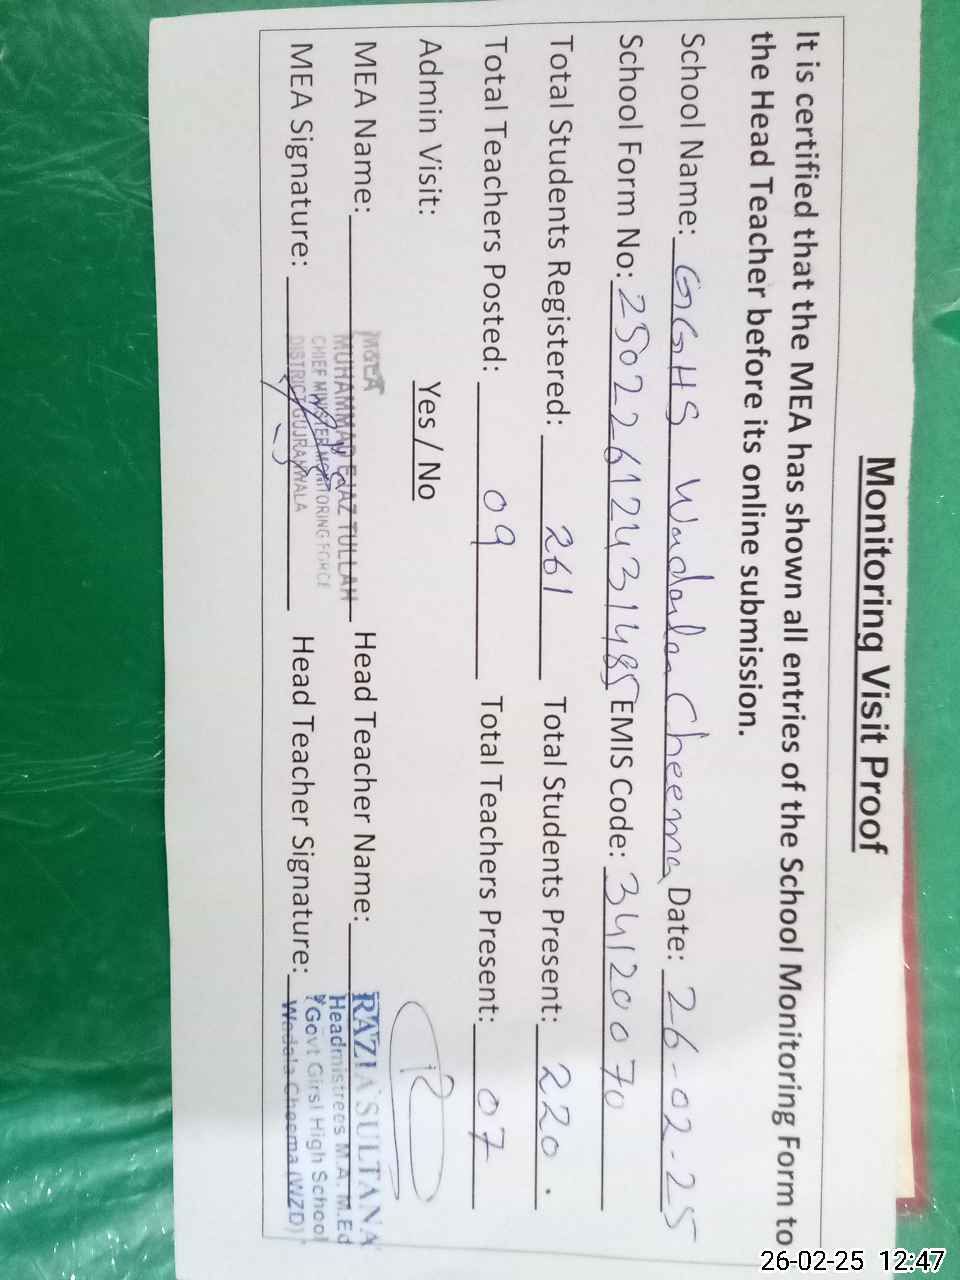 Monitoring Visit Proof
It is certified that the MEA has shown all entries of the School Monitoring Form to
the Head Teacher before its online submission.
School Name: GGHS Wadala Cheema Date: 26-02-25
School Form No: 25022612431485 EMIS Code: 34120070
Total Students Registered: 261 Total Students Present: 220.
Total Teachers Posted: 09 Total Teachers Present: 07
Admin Visit: Yes / No
MEA Name: M&EA MUHAMMAD EJAZ TULLAH Head Teacher Name: RAZIA SULTANA
CHIEF MINISTER MONITORING FORCE Headmistrees M.A. M.Ed
MEA Signature: DISTRICT GUJRANWALA Head Teacher Signature: Govt Girsl High School
Wadala Cheema (WZD)
26-02-25 12:47